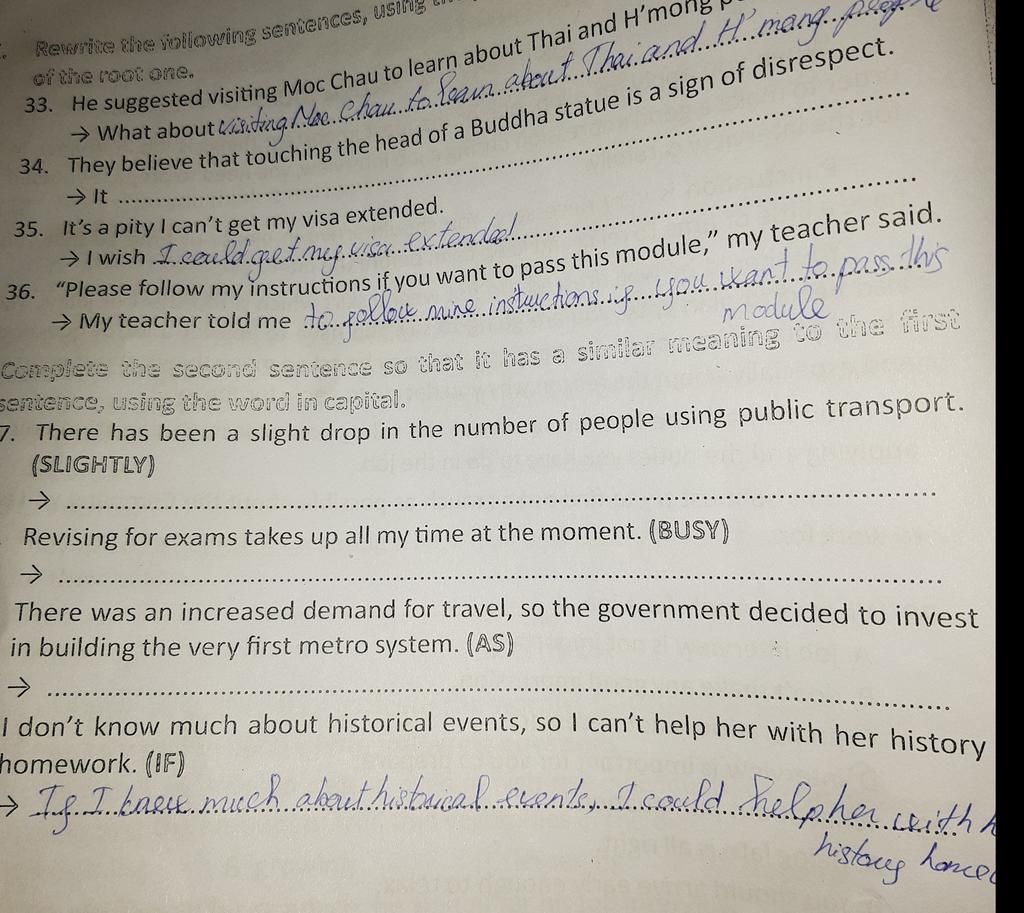 Rewrite the following sentences, using
of the root one.
33. He suggested visiting Moc Chau to learn about Thai and H'mong
→ What about visiting Moc Chau to learn about Thai and H'mang people
34. They believe that touching the head of a Buddha statue is a sign of disrespect.
→ It ....................
35. It's a pity I can't get my visa extended.
→ I wish I could get my visa extended
36. “Please follow my instructions if you want to pass this module,” my teacher said.
→ My teacher told me to follow mine instructions if you want to pass this
module
Complete the second sentence so that it has a similar meaning to the first
sentence, using the word in capital.
7. There has been a slight drop in the number of people using public transport.
(SLIGHTLY)
→ ....................
Revising for exams takes up all my time at the moment. (BUSY)
→ ....................
There was an increased demand for travel, so the government decided to invest
in building the very first metro system. (AS)
→ ....................
I don't know much about historical events, so I can't help her with her history
homework. (IF)
→ If I knew much about historical events, I could help her with
history